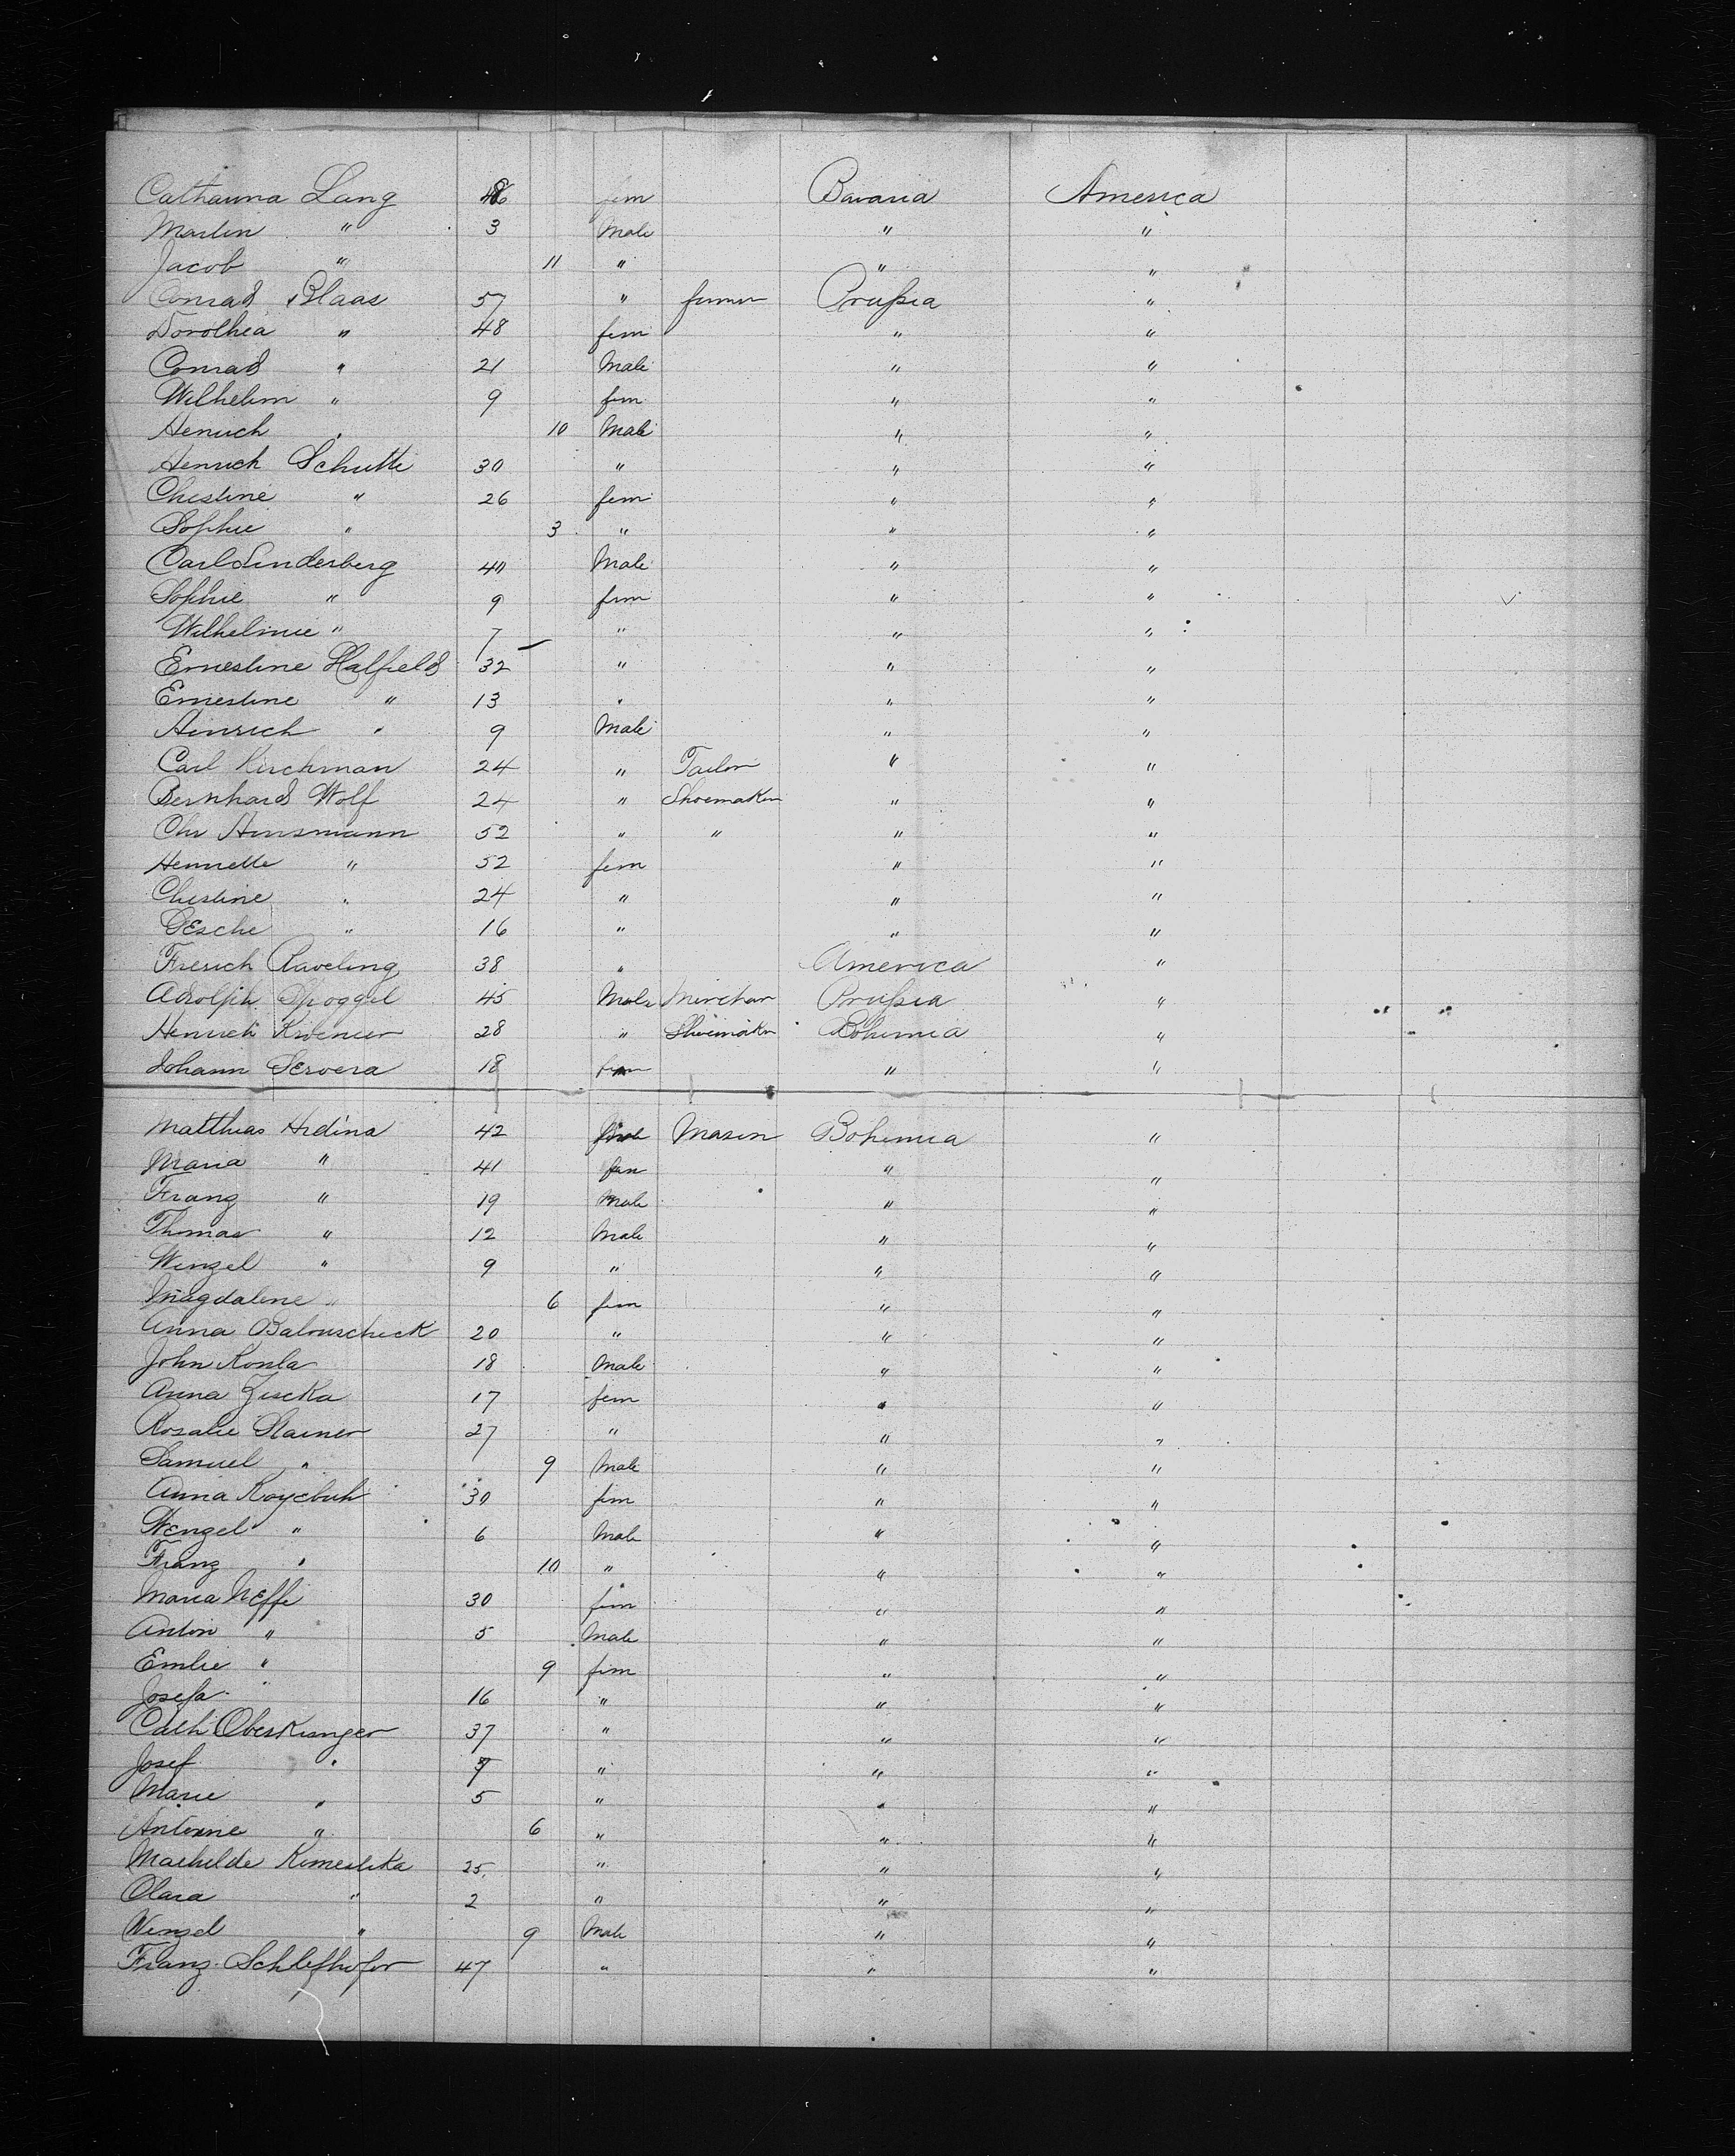 Catharina Lang fem Bavaria America
Martin " 3 Male " "
Jacob " 11 " " "
Conrad Blaas 57 " farmer Prußia "
Dorothea " 48 fem " "
Conrad " 21 Male " "
Wilhelm " 9 fem " "
Henrich " 10 Male " "
Henrich Schutte 30 " " "
Christine " 26 fem " "
Sophie " 3 " " "
Carl Linderberg 40 Male " "
Sophie " 9 fem " "
Wilhelmie " 7 " " "
Ernestine Halfield 32 " " "
Ernestine " 13 " " "
Heinrich " 9 Male " "
Carl Kirchman 24 " Tailor " "
Bernhard Wolf 24 " Shoemaker " "
Chr Hinsmann 52 " " " "
Henriette " 52 fem " "
Christine " 24 " " "
Gesche " 16 " " "
Frerich Raveling 38 " America "
Adolph Spoggel 45 Male Merchan Prußia "
Henrich 28 " Shoemaker Bohemia "
Johann Servera 18 fem " "
Matthias Hrdina 42 Male Mason Bohemia "
Maria " 41 fem " "
Franz " 19 Male " "
Thomas " 12 Male " "
Wenzel " 9 " " "
Magdalene " 6 fem " "
Anna Balouscheck 20 " " "
John Konla 18 Male " "
Anna Ziscka 17 fem " "
Rosalie Stainer 27 " " "
Samuel " 9 Male " "
Anna 30 fem " "
Wenzel " 6 Male " "
Franz " 10 " " "
Maria Neffe 30 fem " "
Anton " 5 Male " "
Emlie " 9 fem " "
Josefa " 16 " " "
Cath Oberkunger 37 " " "
Josef " " " "
Marie " 5 " " "
Antonie " 6 " " "
Mathilde Kimestika 25 " " "
Clara " 2 " " "
Wenzel " 9 Male " "
Franz Schlefhofer 47 " " "